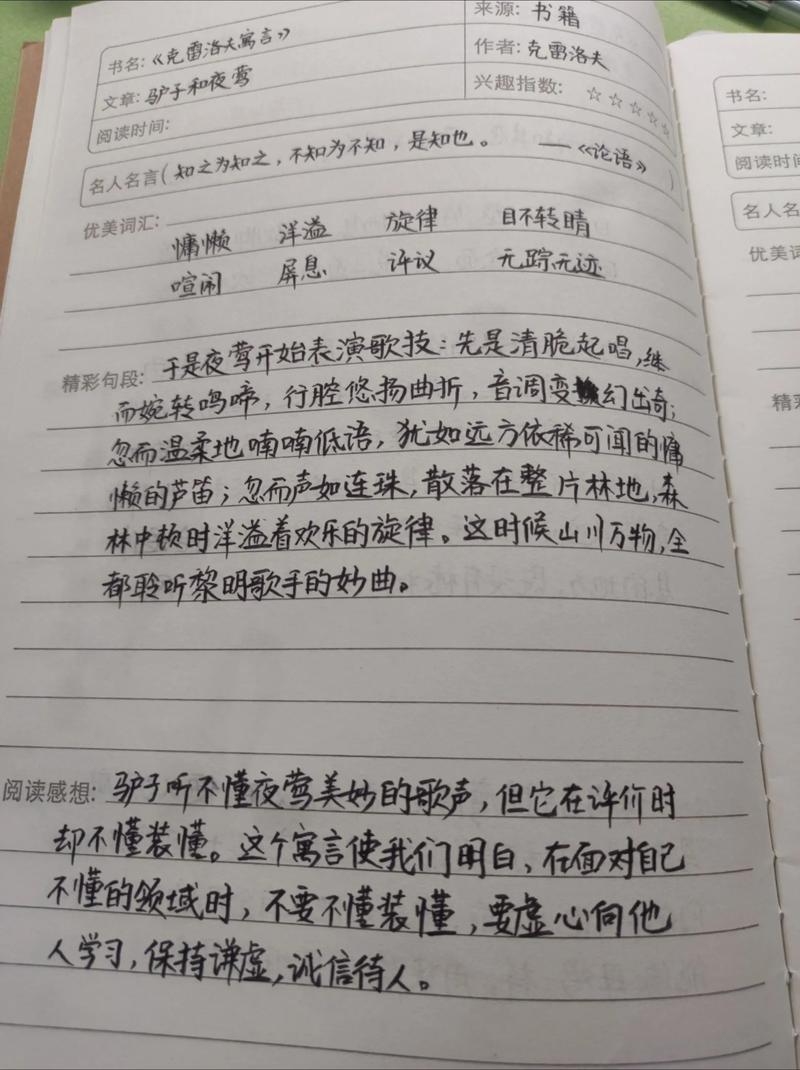 书名:《克雷洛夫寓言》
来源: 书籍
文章: 驴子和夜莺
作者: 克雷洛夫
阅读时间:
兴趣指数: ☆☆☆☆☆
名人名言( 知之为知之，不知为不知，是知也。 ——《论语》 )
优美词汇: 慵懒 洋溢 旋律 目不转睛
喧闹 屏息 评议 无踪无迹
精彩句段: 于是夜莺开始表演歌技：先是清脆起唱，继
而婉转鸣啼，行腔悠扬曲折，音调变幻出奇；
忽而温柔地喃喃低语，犹如远方依稀可闻的慵
懒的芦笛；忽而声如连珠，散落在整片林地，森
林中顿时洋溢着欢乐的旋律。这时候山川万物，全
都聆听黎明歌手的妙曲。
阅读感想: 驴子听不懂夜莺美妙的歌声，但它在评价时
却不懂装懂。这个寓言使我们明白，在面对自己
不懂的领域时，不要不懂装懂，要虚心向他
人学习，保持谦虚，诚信待人。
书名:
文章:
阅读时间
名人名
优美词
精彩